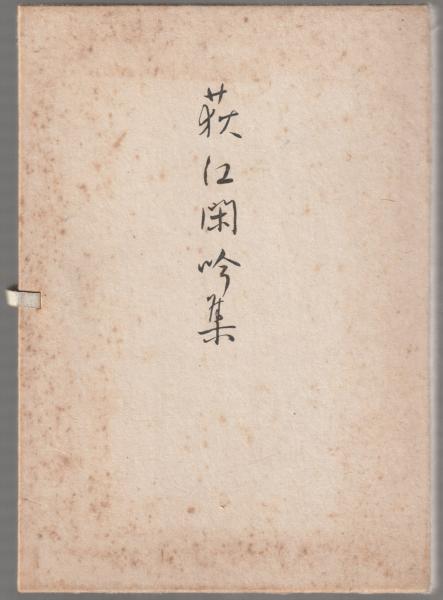 荻江閑吟集